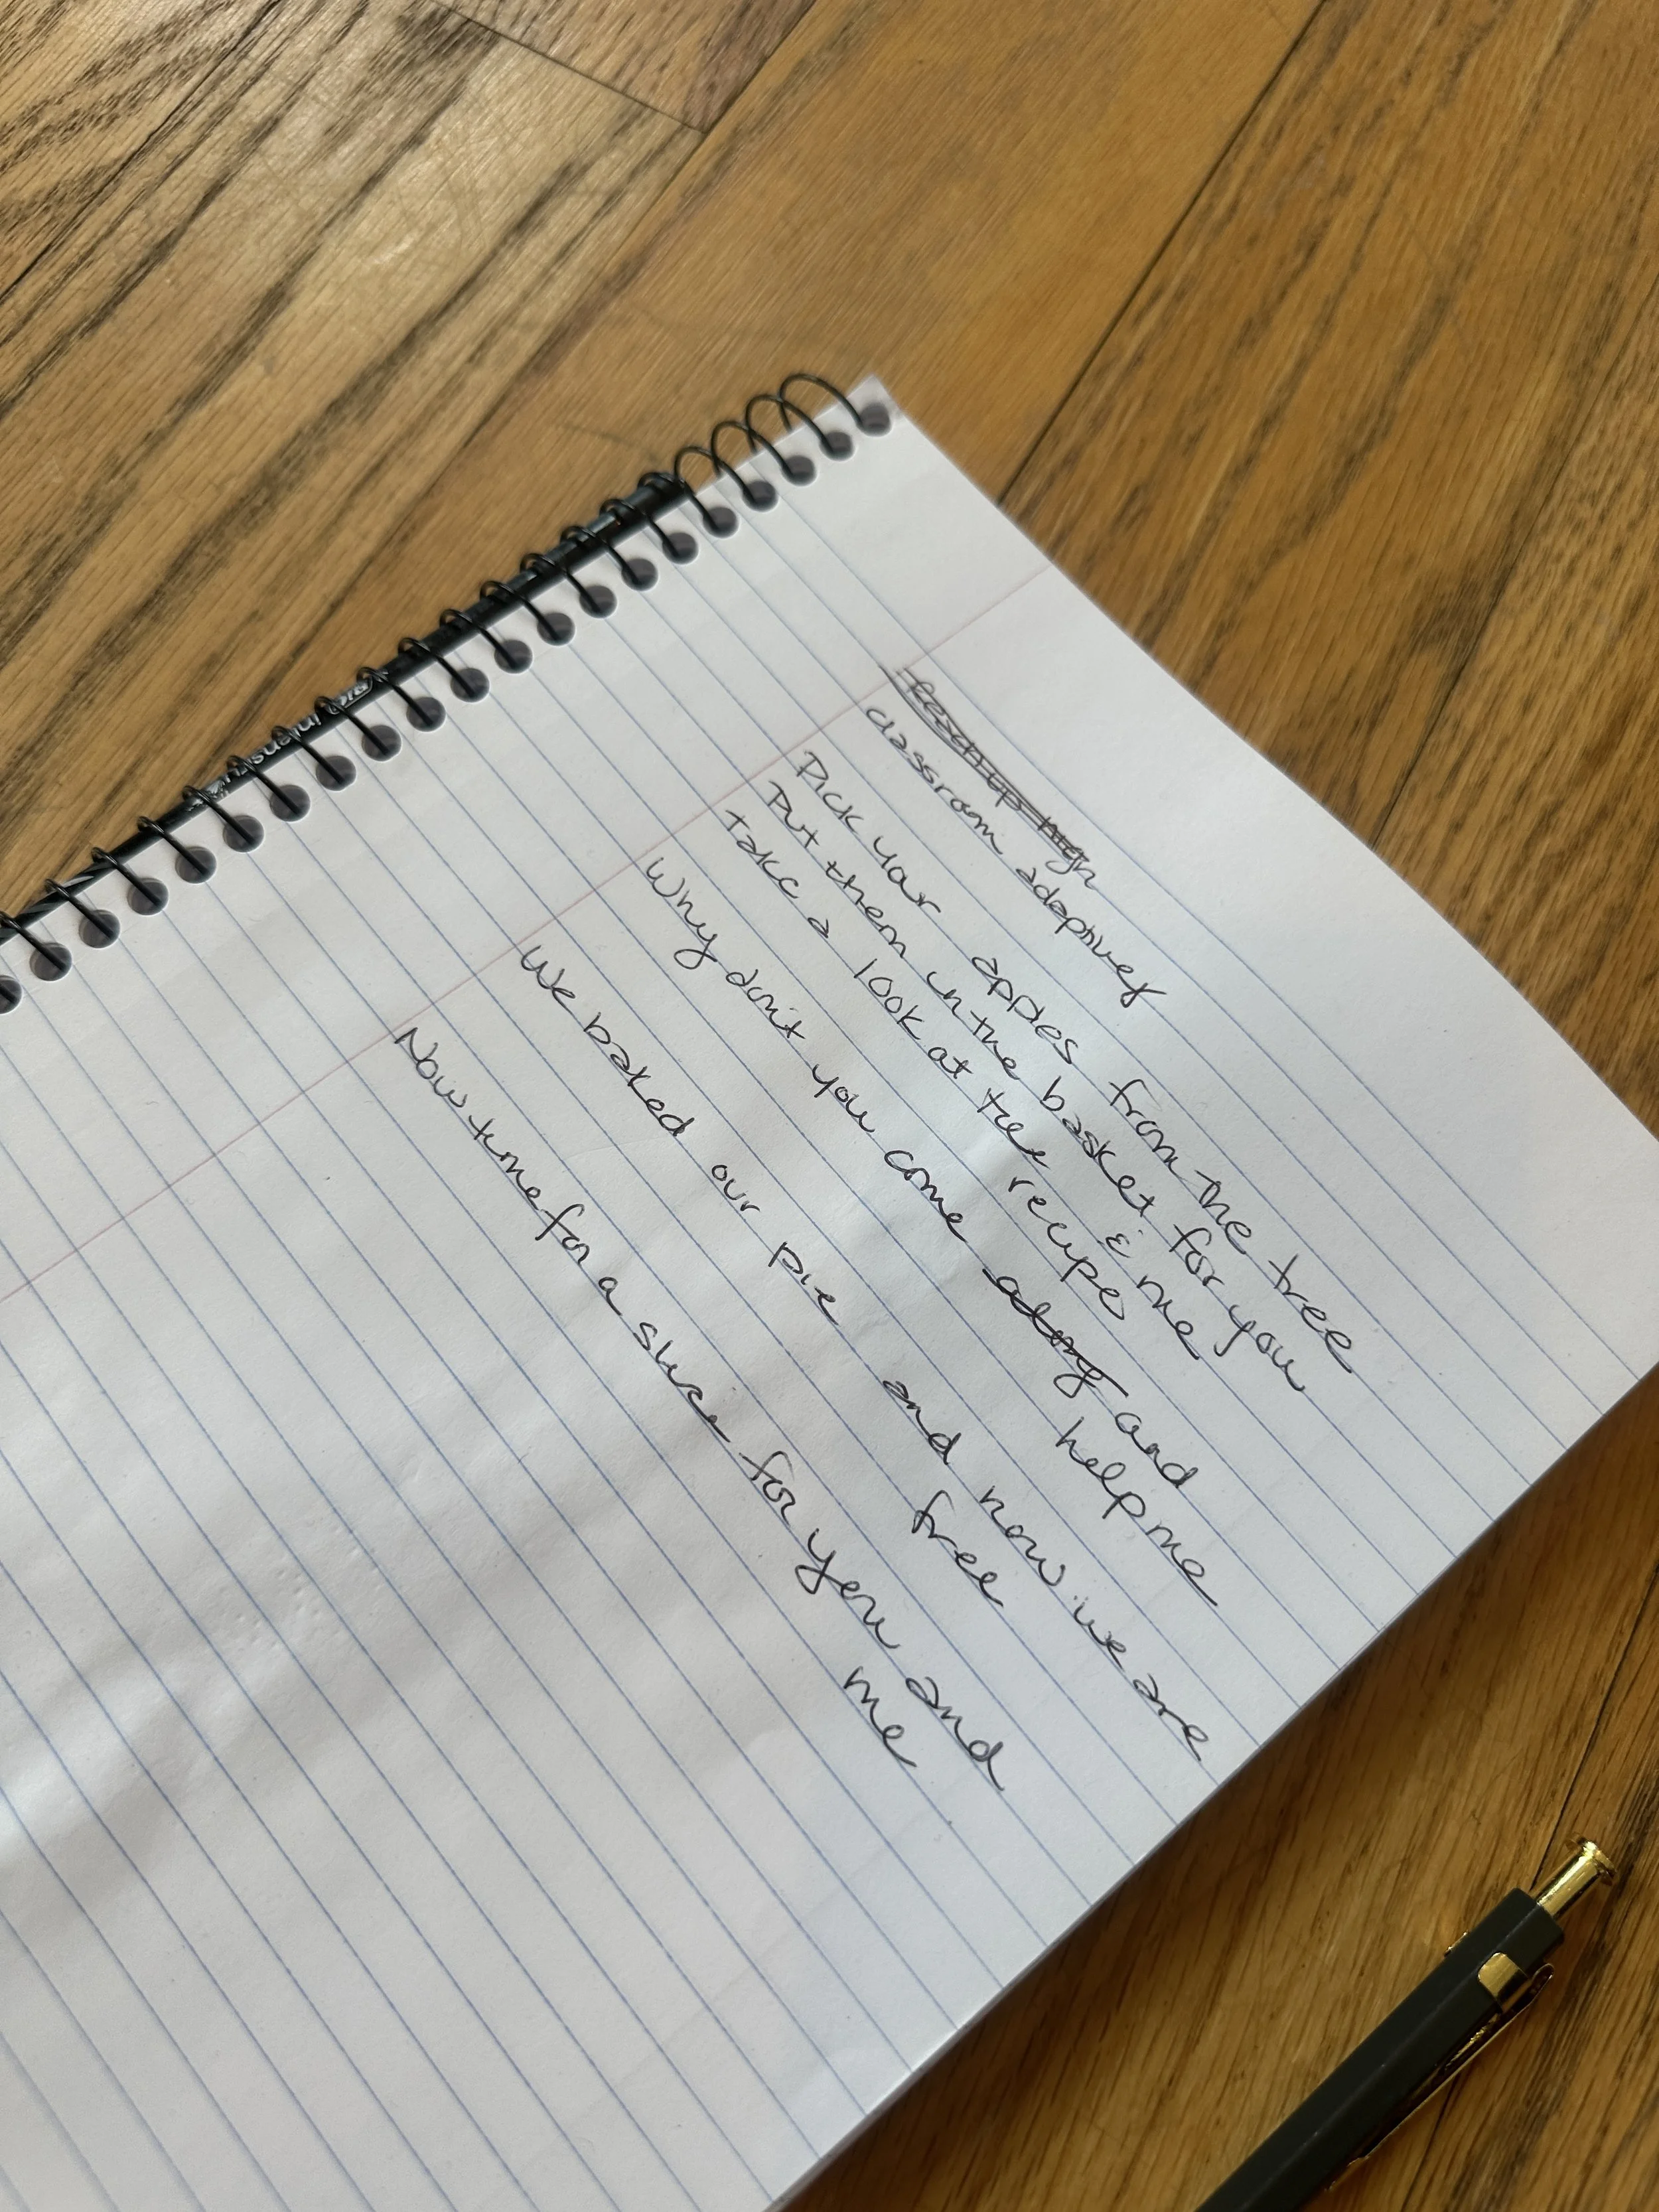 Reach up high
classroom adaptivey
Pick your apples from the tree
Put them in the basket for you
& me
take a look at the recipe
Why don't you come along and
help me
We baked our pie and now we are
free
Now time for a slice for you and
me